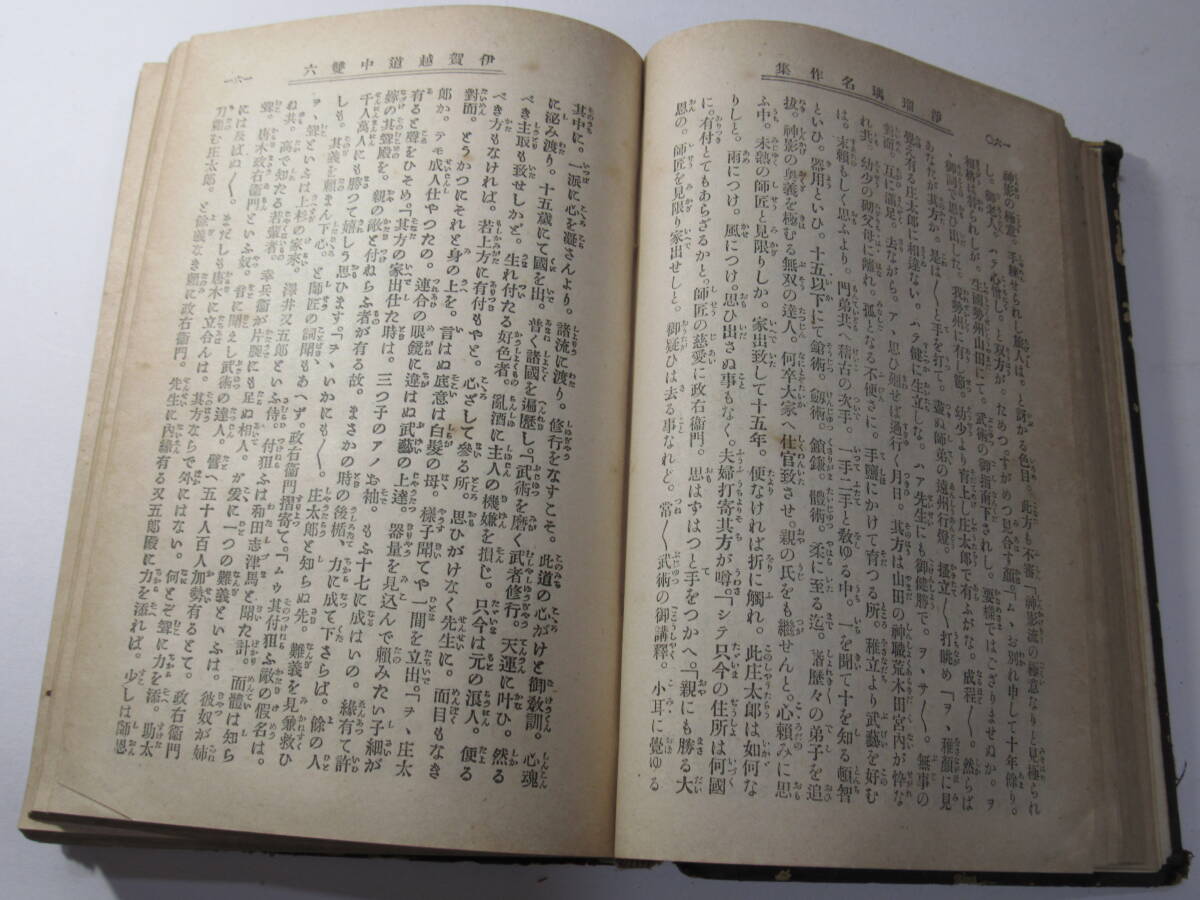 淨瑠璃名作集
一六〇
神影の極意。手練せられし旅人は。と訝かる色目。此方も不審「神影流の極意なりと見極られ
し。御老人。ハテ心憎し。と双方が。ためつ。すがめつ見合す顏。「ム、お別れ申して十年餘り。
相格は替られしが。生國勢州山田にて。武術の御指南下されし。要樣ではござりませぬか。「ヲ
御聞て思出した。我勢州に有し節。幼少より育上し庄太郎で有ふがな。成程〳〵。然らば
あなたが其方か。是は〳〵と手を打て。盡ぬ師弟の遠州行燈。搔立〳〵打眺め「ヲヽ稚顏に見
覺え有る庄太郎に相違ない。ハテ健に生立しな。「ハア先生にも御健勝で。「ヲヽサ〳〵。無事の
對面。互に滿足。去ながら。アヽ思ひ廻せば過行く月日。其方は山田の神職荒木田宮内が忰な
れ共。幼少の砌父母に離れ。孤となる不便さに。手鹽にかけて育つる所。稚立より武藝を好む
は。末賴もしく思ふより。門弟共へ稽古の次手。一手二手と敎ゆる中。一を聞て十を知る頓智
といひ。器用といひ。十五以下にて鎗術。劔術。鎖鎌。體術。柔に至る迄。諸歷々の弟子を追
拔。神影の奧義を極むる無双の達人。何卒大家へ仕官致させ。親の氏をも繼せんと。心賴みに思
ふ中。未熟の師匠と見限りしか。家出致して十五年。便なければ折に觸れ。此庄太郎は如何な
りしと。雨につけ。風につけ。思ひ出さぬ事もなく。夫婦打寄其方が噂。「シテ只今の住所は何國
に。有付とてもあらざるかと。師匠の慈愛に政右衞門。思はずはつと手をつかへ。「親にも勝る大
恩の。師匠を見限り家出せしと。御疑ひは去る事なれど。常〳〵武術の御講釋。小耳に覺ゆる
伊賀越道中雙六
一六一
其中に。一派に心を凝さんより。諸流に渡り。修行をなすこそ。此道の心がけと御敎訓。心魂
に泌み渡り。十五歲にて國を出。普く諸國を遍歷し。「武術を磨く武者修行。天運に叶ひ。然る
べき主取も致せしかど。生れ付たる好色者。亂酒に主人の機嫌を損じ。只今は元の浪人。便る
べき方もなければ。若上方に有付もやと。心ざして參る所。思ひがけなく先生に。面目もなき
對面。とうかつにそれと身の上を。言はぬ底意は白髮の母。樣子聞てや一間を立出。「ヲヽ庄太
郎か。テモ成人仕やつたの。連合の眼鏡に違はぬ武藝の上達。器量を見込んで賴みたい子細が
有ると聲をひそめ。「其方の家出仕た時は。三つ子のアノお袖。もふ十七に成はいの。緣有て許
嫁の其聟殿を。親の敵と付ねらふ者が有る故。まさかの時の後楯。力に成て下さらば。餘の人
千人萬人にも勝つて嬉しう思ひます。「ヲヽいかにも〳〵。庄太郎と知らぬ先。難義を見兼救ひ
しも。其義を賴まん下心。と師匠の詞聞もあへず。政右衞門摺寄て。「ムウ其付狙ふ敵の假名は。
ヲヽ聟といふは上杉の家來。澤井又五郎といふ侍。付狙ふは和田志津馬と聞た計。面體は知ら
ぬ共。高で知たる若輩者。幸兵衞が片腕にも足ぬ相人。が爰に一つの難義といふは。彼奴が姉
聟。唐木政右衞門といふ奴。君にも聞えし武術の達人。譬へ五十人百人加勢有るとて。政右衞門
には及ばぬ〳〵。まだしも唐木に立合んは。其方ならで外にはない。何とぞ聟に力を添。助太
刀賴む庄太郎。と餘義なき賴に政右衞門。先生に内緣有る又五郎殿に力を添れば。少しは師恩